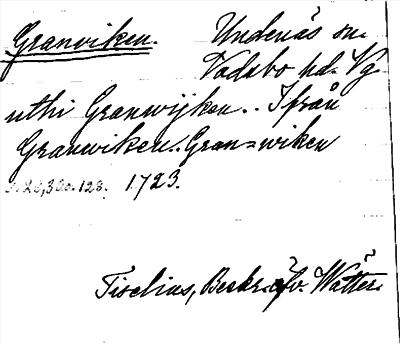 Granviken. Undenäs sn.
Vadsbo hd. Vg
uthi Granwijken.. Ifrån
Granwiken.. Gran=wiken
s. 26, 380. 128. 1723.
Tiselius, Beskr. öfv. Wätter.